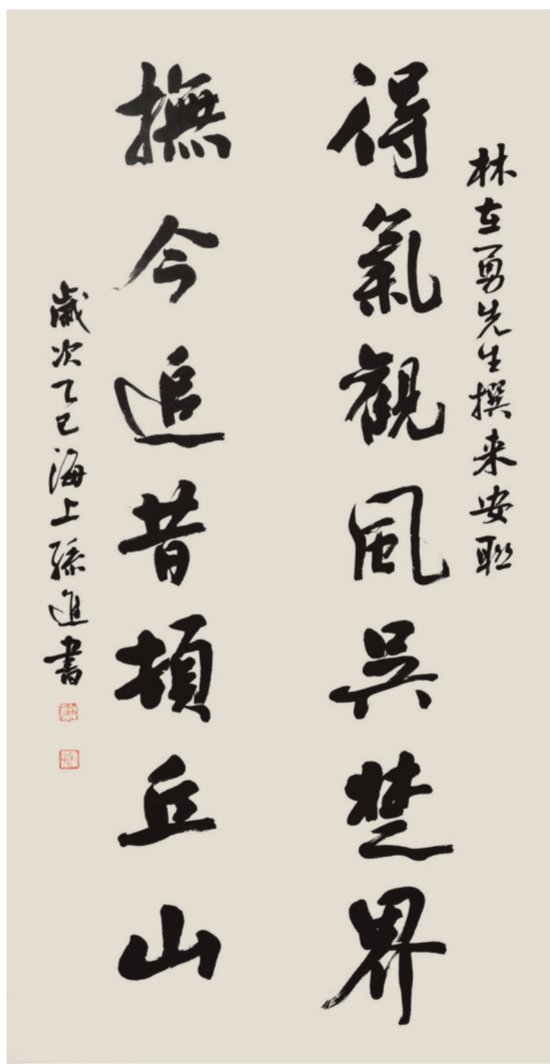 林在勇先生撰来安联
得氣觀風吳楚界
撫今追昔頓丘山
歲次乙巳海上孫進書